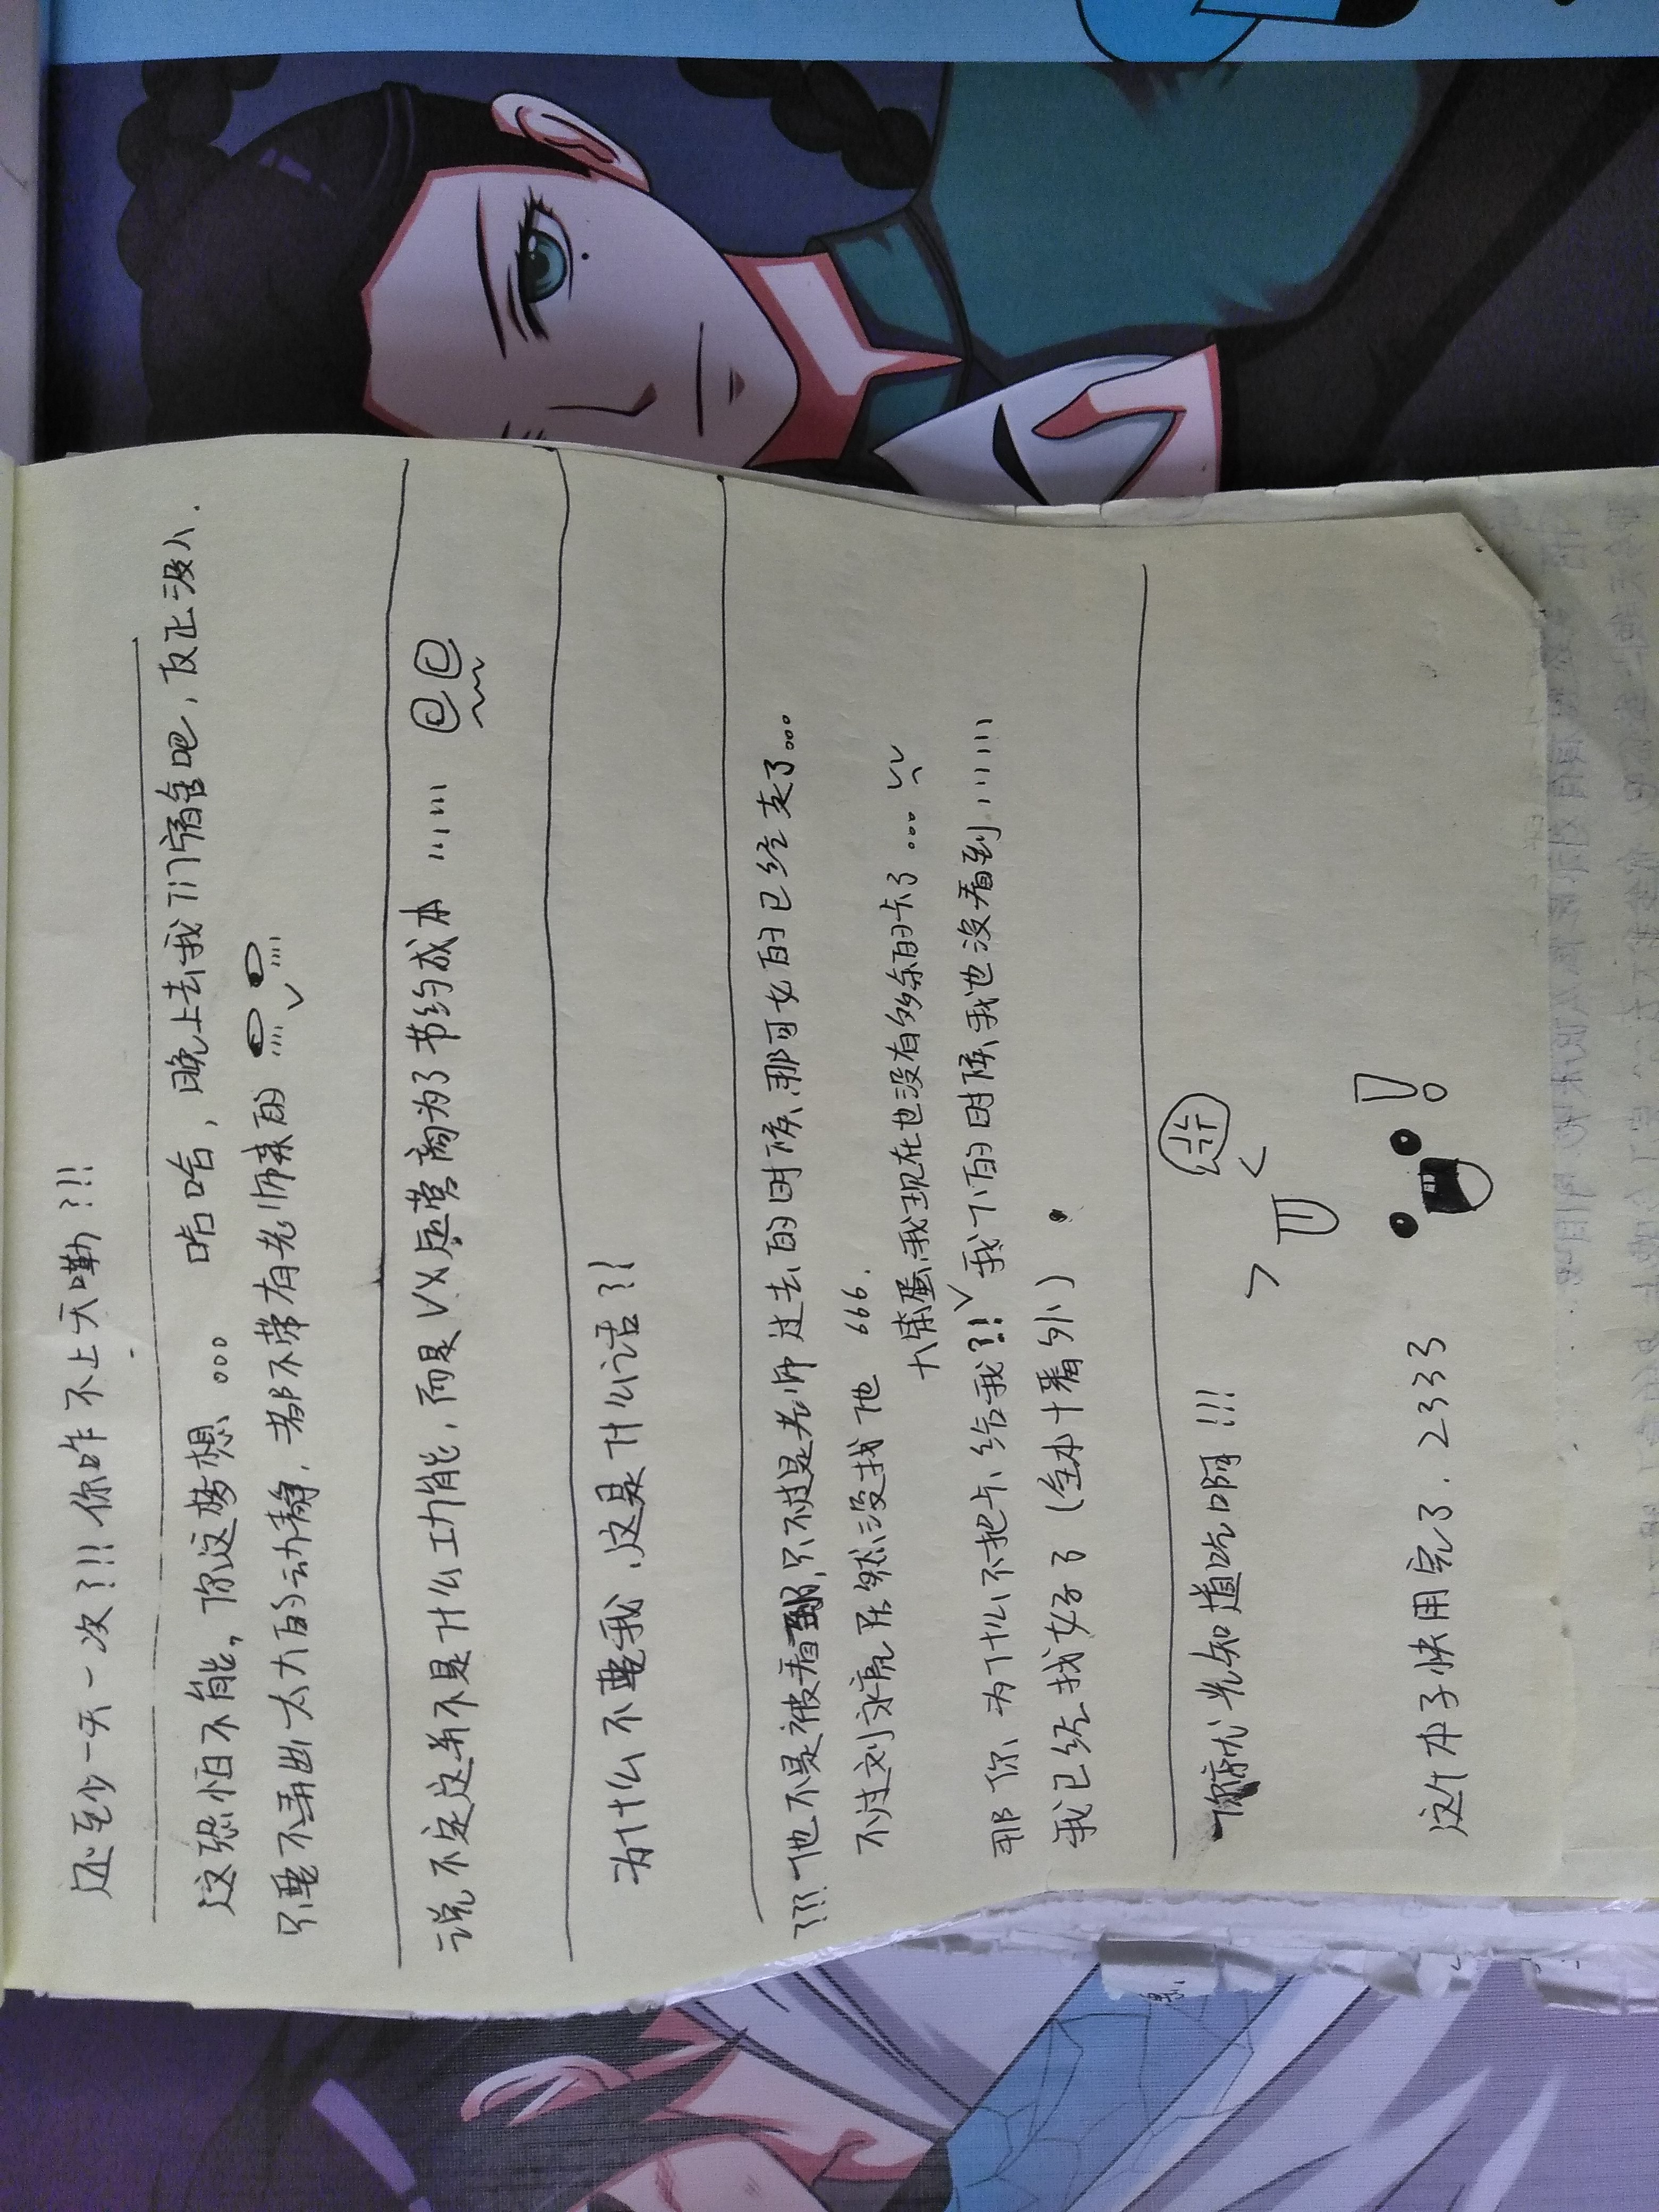 还至少一天一次?!!你咋不上天嘞?!!
这恐怕不能,你这梦想 。。。 哈哈,晚上去我们宿舍吧,反正没人.
只要不弄出太大的动静,都不带有老师来的
说不定这并不是什么功能,而是VX运营商为了节约成本 ……
为什么不要我,这是什么话?!
???他不是被看到,只不过是老师过去的时候,那可女的已经走了...
不过刘永亮居然没找他 666.
大笨蛋,我现在也没有多余的卡了 ...
那你为什么不把卡给我?! 我下的时候,我也没看到 ……
我已经找好了(全本+番外)
你就光知道吃啊!!!
这个本子快用完了. 2333 !